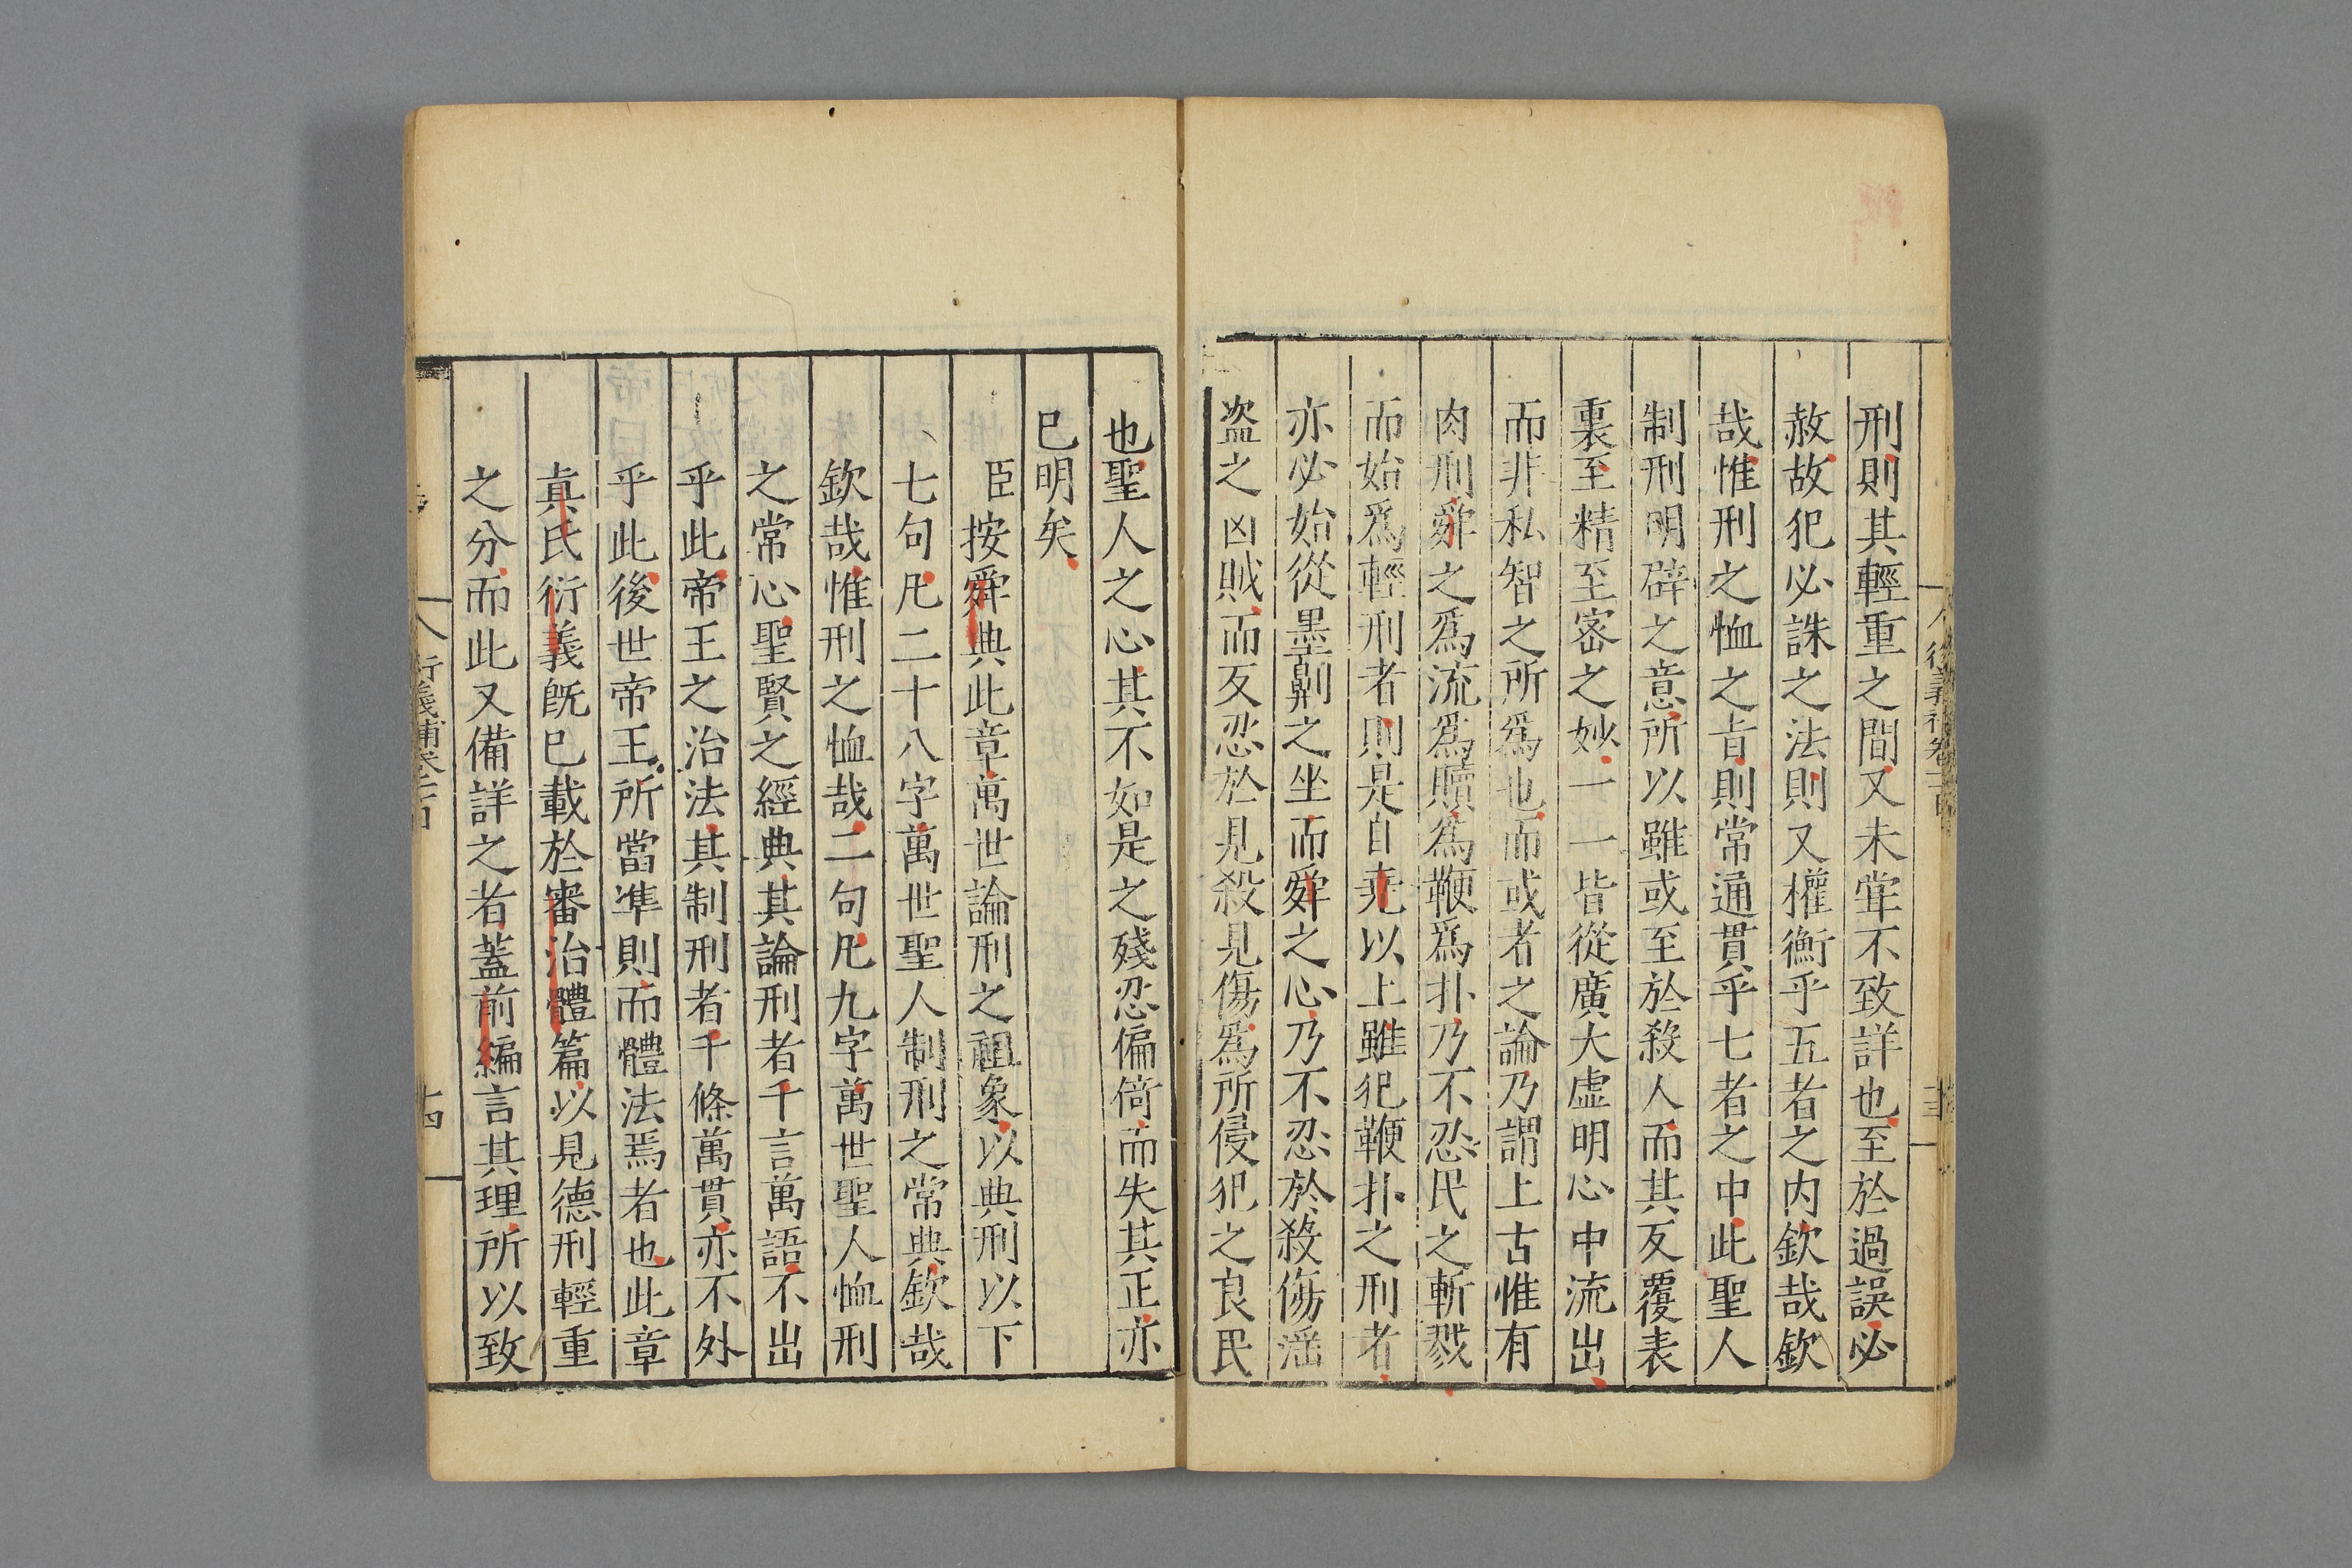 刑則其輕重之間又未甞不致詳也至於過誤必
赦故犯必誅之法則又權衡乎五者之内欽哉欽
哉惟刑之恤之旨則常通貫乎七者之中此聖人
制刑明辟之意所以雖或至於殺人而其反覆表
裏至精至宻之妙一一皆從廣大虛明心中流出
而非私智之所爲也而或者之論乃謂上古惟有
肉刑舜之爲流爲贖爲鞭爲扑乃不忍民之斬戮
而始爲輕刑者則是自堯以上雖犯鞭扑之刑者
亦必始從墨劓之坐而舜之心乃不忍於殺傷滛
盜之凶賊而反忍於見殺見傷爲所侵犯之良民
也聖人之心其不如是之殘忍偏倚而失其正亦
已明矣
臣按舜典此章萬世論刑之祖象以典刑以下
七句凡二十八字萬世聖人制刑之常典欽哉
欽哉惟刑之恤哉二句凡九字萬世聖人恤刑
之常心聖賢之經典其論刑者千言萬語不出
乎此帝王之治法其制刑者千條萬貫亦不外
乎此後世帝王所當準則而體法焉者也此章
真氏衍義既已載於審治體篇以見德刑輕重
之分而此又備詳之者蓋前編言其理所以致
衍義補卷之一百
十四